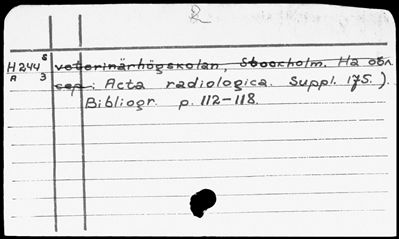 2
H244 s veterinärhögskolan, Stockholm. На обл.
A 3 sep.: Acta radiologica. Suppl. 175.).
Bibliogr. p. 112-118.